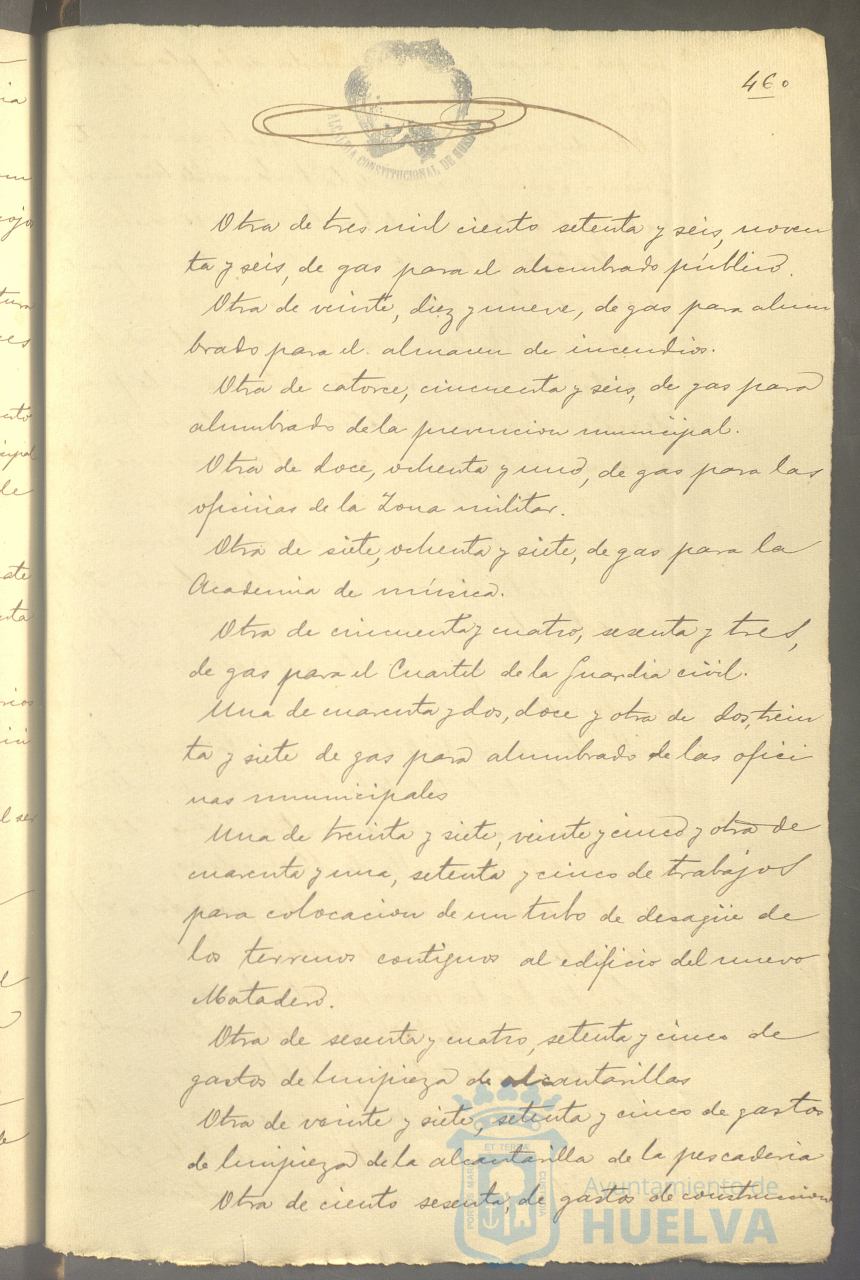 46
ALCALDIA CONSTITUCIONAL DE HUELVA
Otra de tres mil ciento setenta y seis, noven
ta y seis, de gas para el alumbrado público.
Otra de veinte, diez y nueve, de gas para alum
brado para el almacen de incendios.
Otra de catorce, cincuenta y seis, de gas para
alumbrado de la prevencion municipal.
Otra de doce, ochenta y uno, de gas para las
oficinas de la Zona militar.
Otra de siete, ochenta y siete, de gas para la
Academia de música.
Otra de cincuenta y cuatro, sesenta y tres,
de gas para el Cuartel de la Guardia civil.
Una de cuarenta y dos, doce y otra de dos, trein
ta y siete de gas para alumbrado de las ofici
nas municipales
Una de treinta y siete, veinte y cinco y otra de
cuarenta y una, setenta y cinco de trabajos
para colocacion de un tubo de desagüe de
los terrenos contiguos al edificio del nuevo
Matadero.
Otra de sesenta y cuatro, setenta y cinco de
gastos de limpieza de alcantarillas
Otra de veinte y siete, setenta y cinco de gastos
de limpieza de la alcantarilla de la pescaderia
Otra de ciento sesenta, de gastos de construccion
PORTUS MARIS ET TERRAE CUSTODIA
Ayuntamiento de
HUELVA